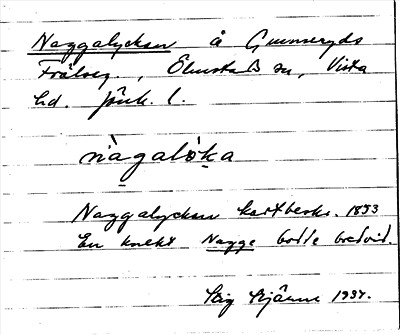 Naggalyckan å Gunneryds
Frälseg., Ölmstads sn, Vista
hd. Jönk. l.
nàgalöka
Naggalyckan kartbeskr. 1853
En knekt Nagge bodde bredvid.
Stig Bjärme 1934.